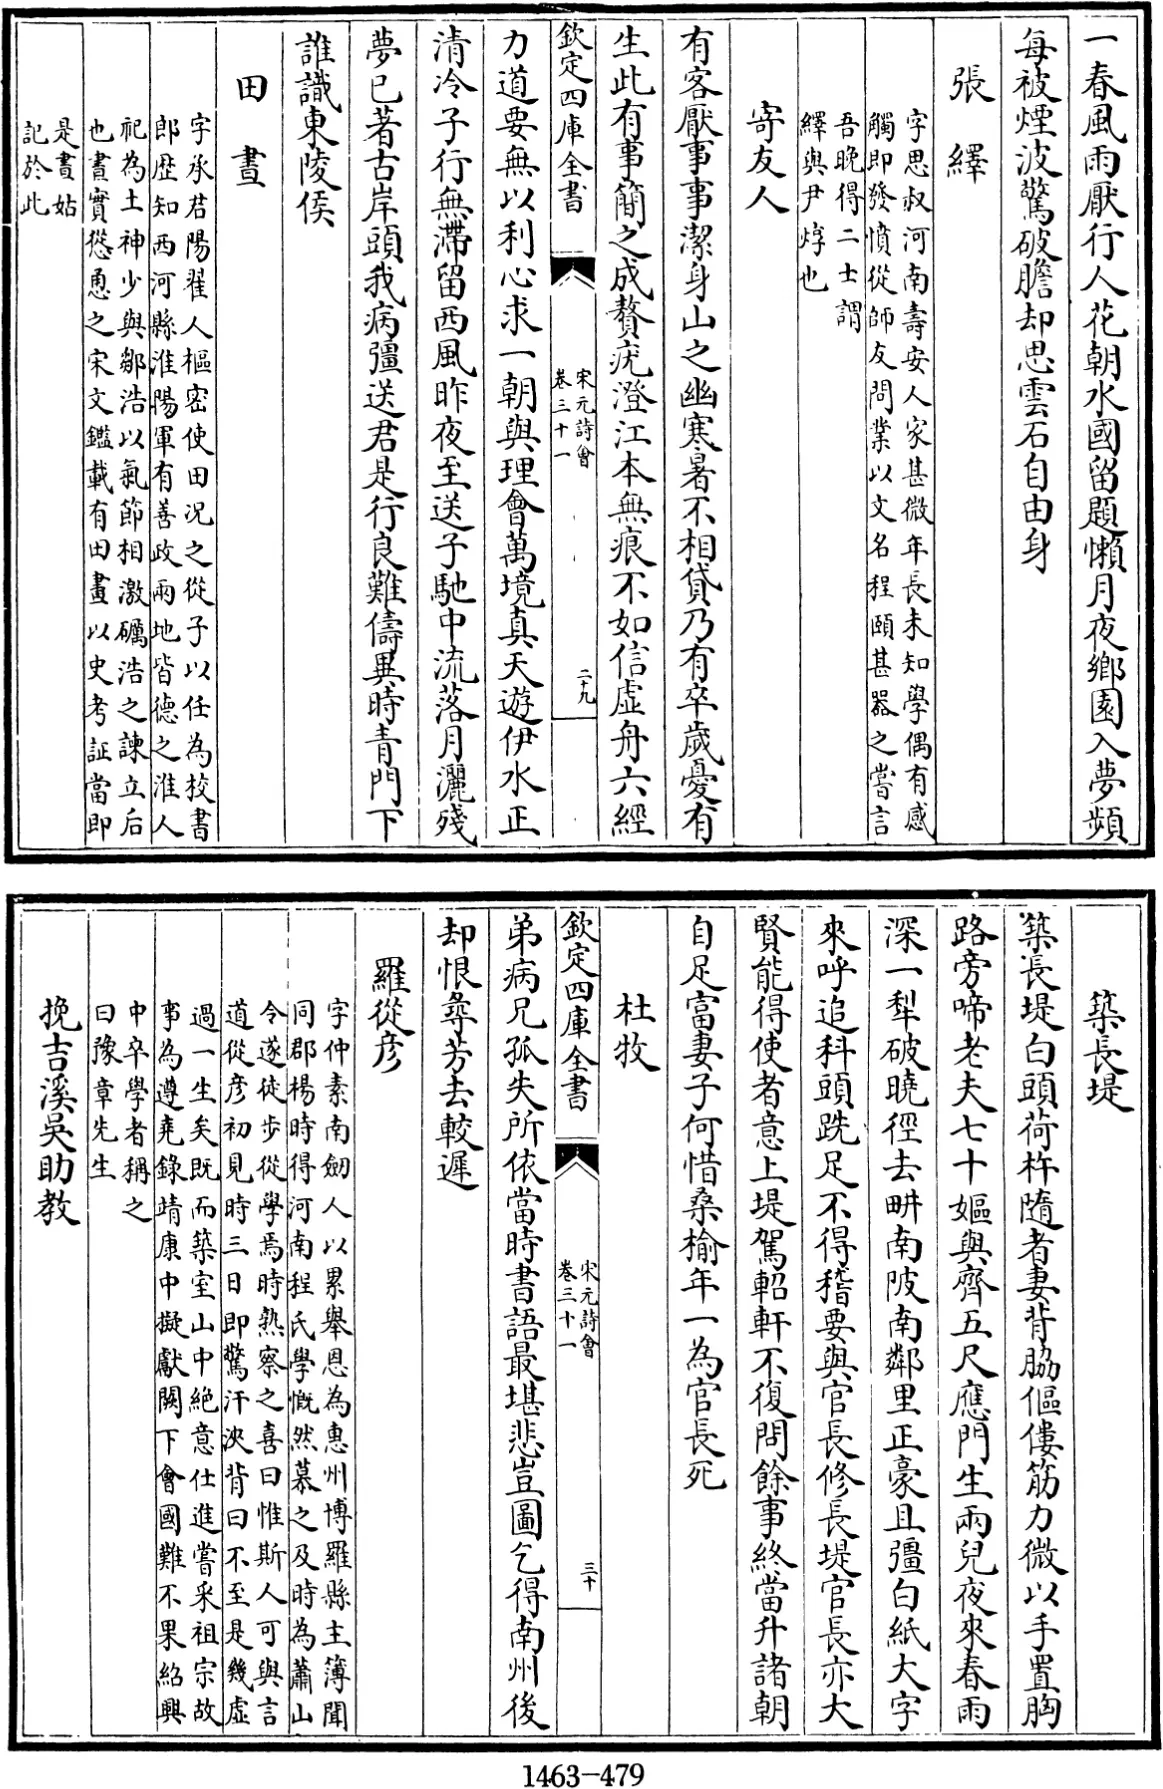 一春風雨厭行人花朝水國留題懶月夜鄉園入夢頻
每被煙波驚破膽却思雲石自由身
張繹
字思叔河南壽安人家甚微年長未知學偶有感
觸即發憤從師友問業以文名程頤甚器之嘗言
吾晚得二士謂
繹與尹焞也
寄友人
有客厭事事事潔身山之幽寒暑不相貸乃有卒歲憂有
生此有事簡之成贅疣澄江本無痕不如信虛舟六經
欽定四庫全書
宋元詩會
卷三十一
二十九
力道要無以利心求一朝與理會萬境真天遊伊水正
清冷子行無滯留西風昨夜至送子馳中流落月灑殘
夢已著古岸頭我病彊送君是行良難儔異時青門下
誰識東陵侯
田晝
字承君陽翟人樞密使田况之從子以任為校書
郎歴知西河縣淮陽軍有善政兩地皆德之淮人
祀為土神少與鄒浩以氣節相激礪浩之諫立后
也晝實慫恿之宋文鑑載有田畫以史考証當即
是晝姑
記於此
築長堤
築長堤白頭荷杵隨者妻背脇傴僂筋力微以手置胸
路旁啼老夫七十嫗與齊五尺應門生兩兒夜來春雨
深一犁破曉徑去畊南陂南鄰里正豪且彊白紙大字
來呼追科頭跣足不得稽要與官長修長堤官長亦大
賢能得使者意上堤駕軺軒不復問餘事終當升諸朝
自足富妻子何惜桑榆年一為官長死
杜牧
欽定四庫全書
宋元詩會
卷三十一
三十
弟病兄孤失所依當時書語最堪悲豈圖乞得南州後
却恨尋芳去較遲
羅從彥
字仲素南劒人以累舉恩為惠州博羅縣主簿聞
同郡楊時得河南程氏學慨然慕之及時為蕭山
令遂徒步從學焉時熟察之喜曰惟斯人可與言
道從彥初見時三日即驚汗浹背曰不至是幾虛
過一生矣既而築室山中絶意仕進嘗采祖宗故
事為遵堯錄靖康中擬獻闕下會國難不果紹興
中卒學者稱之
曰豫章先生
挽吉溪吳助教
1463-479